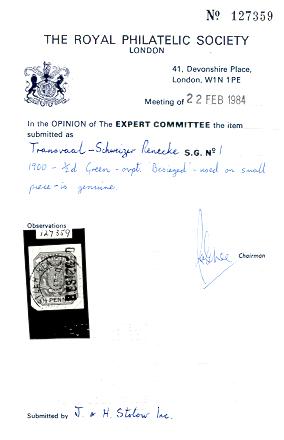 Nº 127359
THE ROYAL PHILATELIC SOCIETY
LONDON
41, Devonshire Place,
London, W1N 1PE
Meeting of 22 FEB 1984
In the OPINION of The EXPERT COMMITTEE the item
submitted as
Transvaal - Schweizer Renecke S.G. Nº 1
1900 - ½d Green - ovpt. Besieged - used on small
piece - is genuine.
Observations
127359
Chairman
½ PENNY
Submitted by J. & H. Stolow Inc.